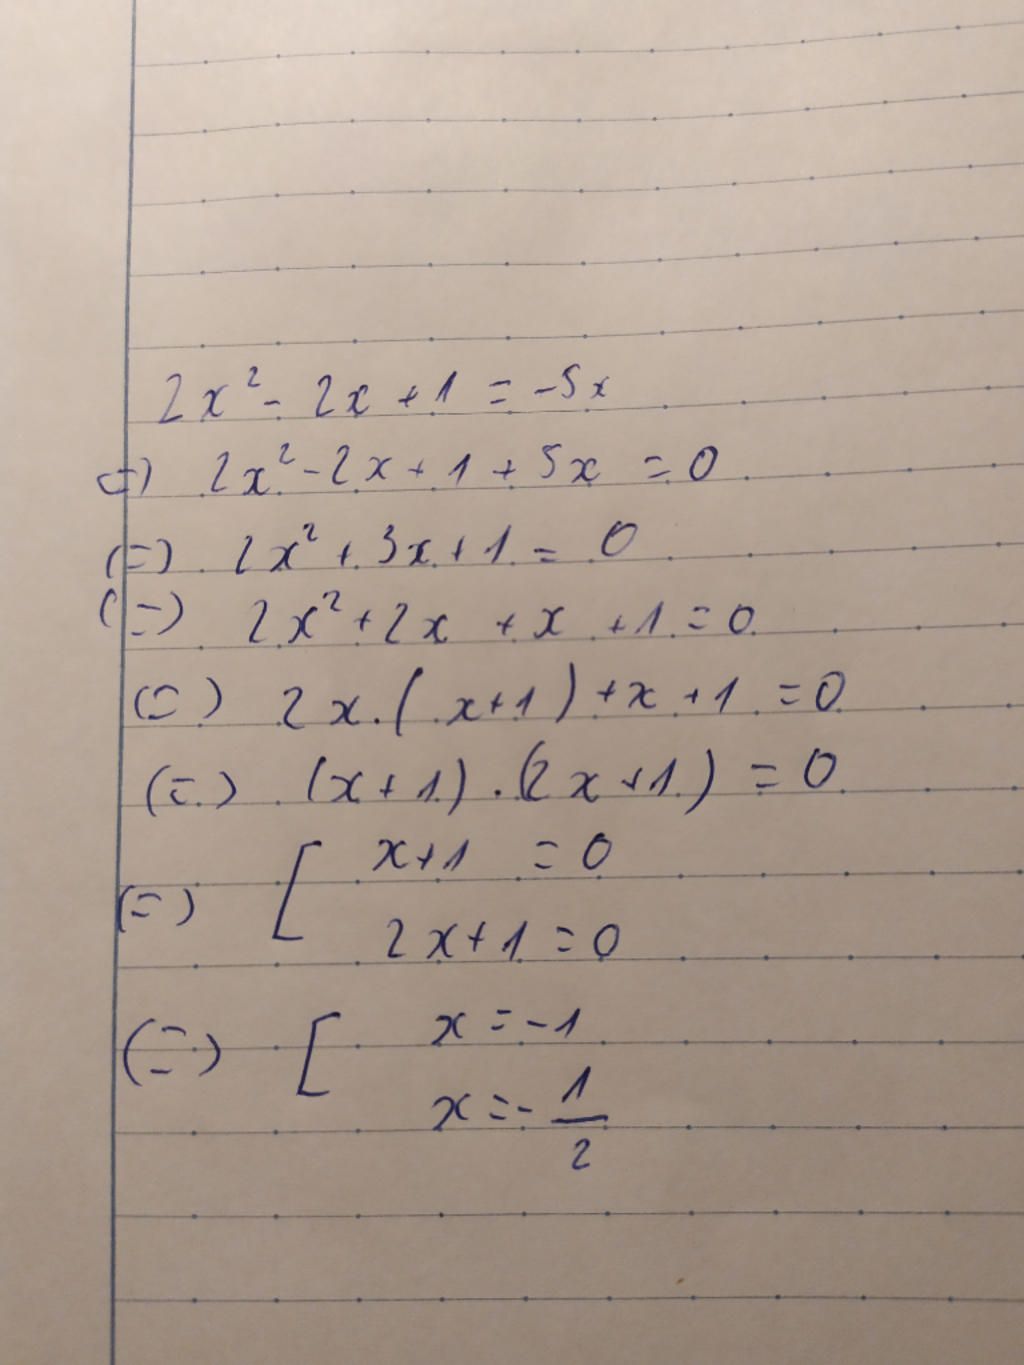 2x² - 2x + 1 = -5x
(=) 2x² - 2x + 1 + 5x = 0
(=) 2x² + 3x + 1 = 0
(=) 2x² + 2x + x + 1 = 0
(=) 2x.(x+1) + x + 1 = 0
(=) (x+1).(2x+1) = 0
(=) [ x+1 = 0
2x+1 = 0
(=) [ x = -1
x = - 1/2